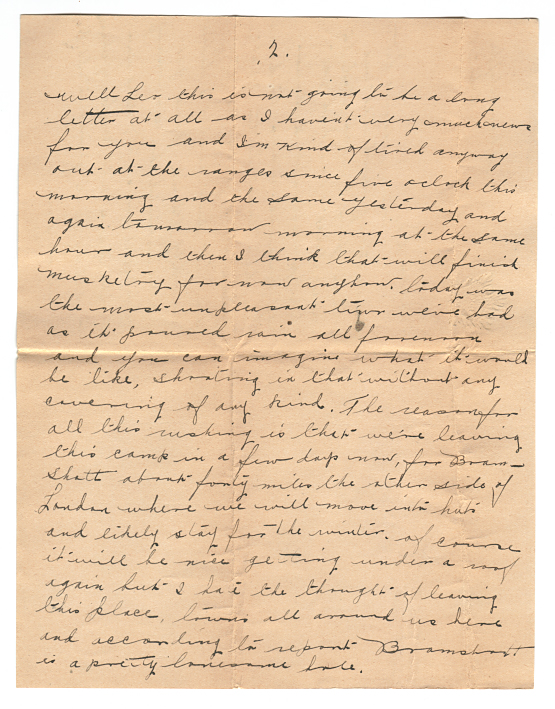 2.
Well Lev this is not going to be a long
letter at all as I haven't very much news
for you and I'm kind of tired anyway
out at the ranges since five oclock this
morning and the same yesterday and
again tomorrow morning at the same
hour and then I think that will finish
musketry for now anyhow. Today was
the most unpleasant time we've had
as it poured rain all forenoon
and you can imagine what it would
be like, shooting in that without any
covering of any kind. The reason for
all this rushing is that we're leaving
this camp in a few days now, for Bram-
shott about forty miles the other side of
London where we will move into huts
and likely stay for the winter. Of course
it will be nice getting under a roof
again but I hate the thought of leaving
this place, towns all around us here
and according to report Bramshott
is a pretty lonesome hole.